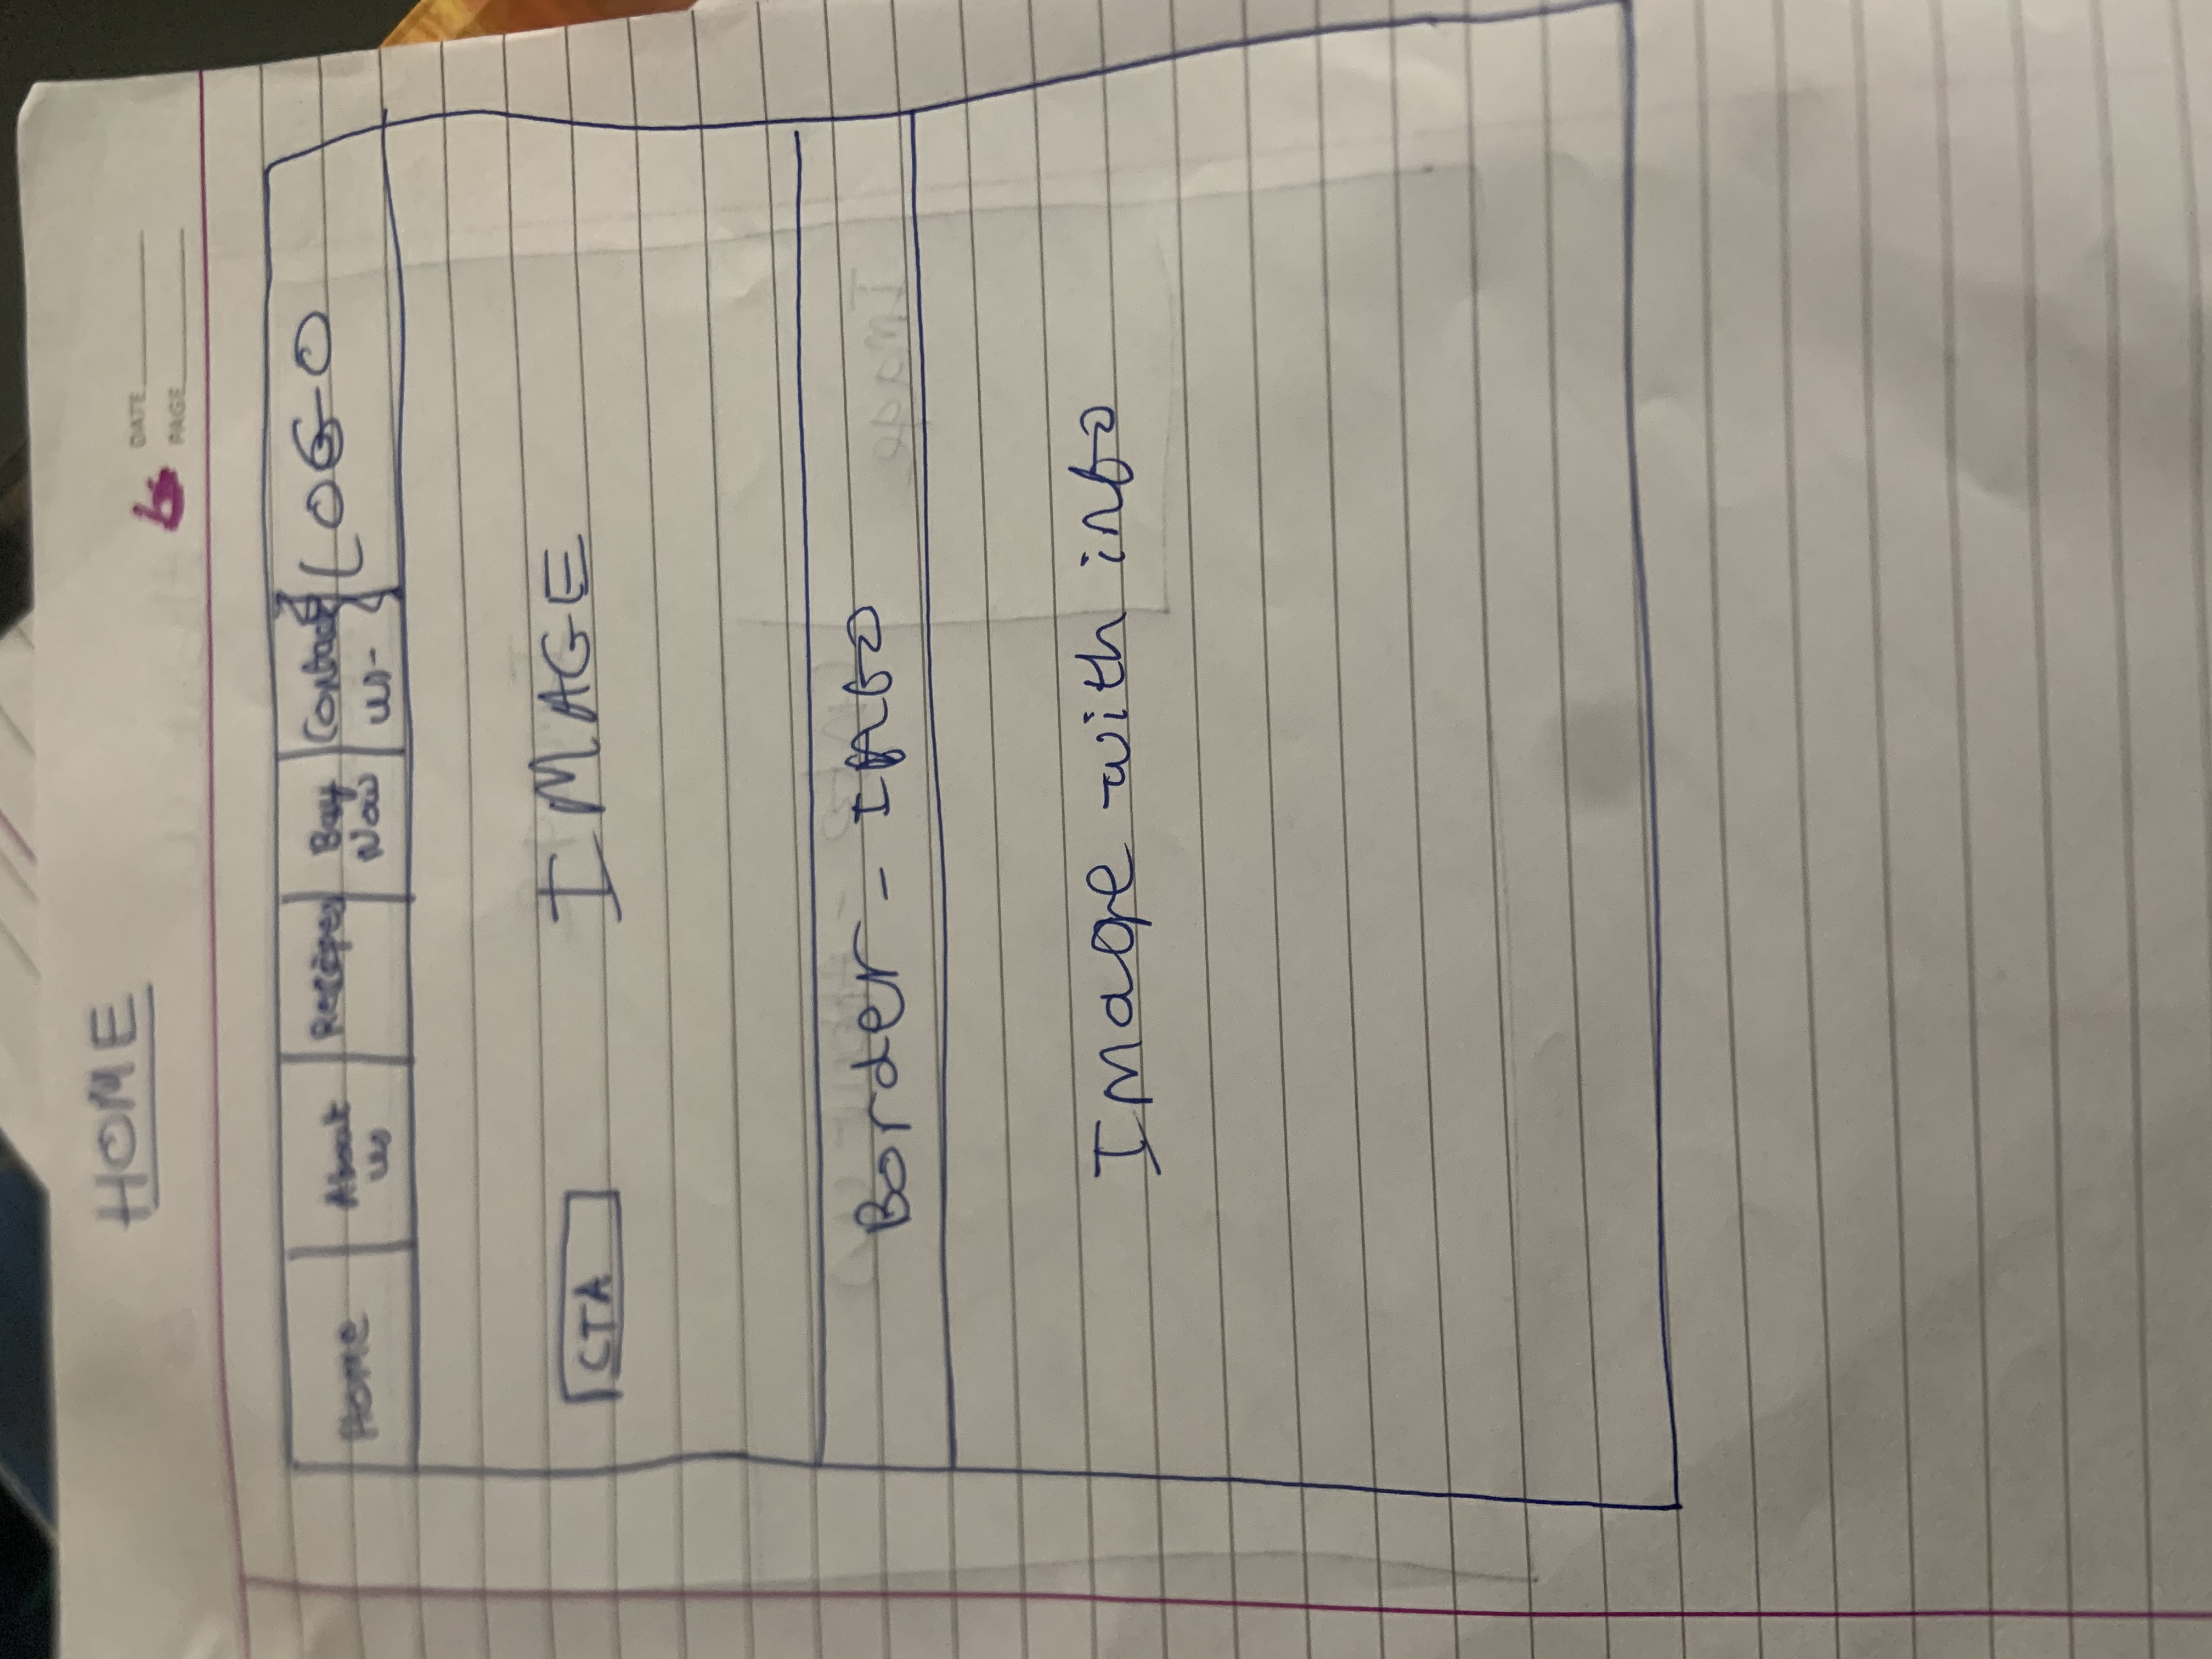 HOME
DATE
PAGE
Home
About us
Recipes
Buy Now
Contact us
LOGO
CTA
IMAGE
Border - Info
Image with info